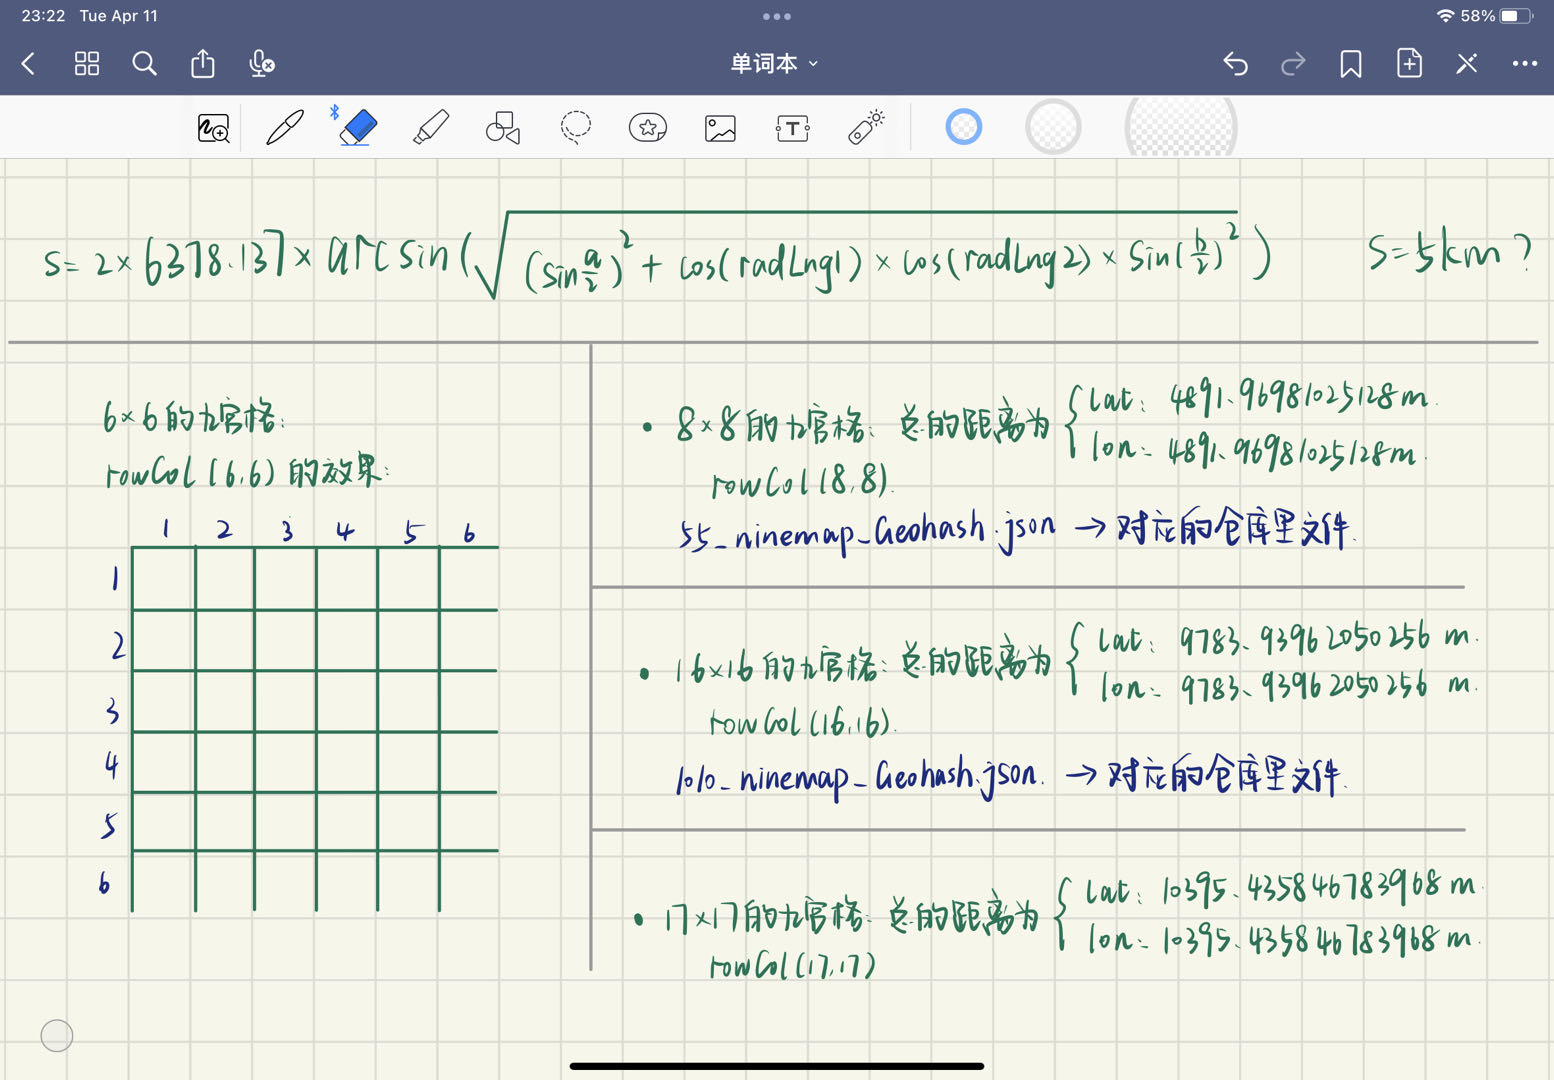 23:22 Tue Apr 11
58%
单词本
T
S = 2 × 6378.137 × arcsin(√((sin a/2)² + cos(radLng1) × cos(radLng2) × Sin(b/2)²)
S=5km?
6×6的九宫格:
rowCol(6,6)的效果:
1 2 3 4 5 6
1
2
3
4
5
6
• 8×8的九宫格: 总的距离为 { lat: 4891.96981025128m.
lon: 4891.96981025128m.
rowCol(8,8).
55_ninemap_Geohash.json → 对应的仓库里文件.
• 16×16的九宫格: 总的距离为 { lat: 9783.93962050256 m.
lon: 9783.93962050256 m.
rowCol(16,16).
1010_ninemap_Geohash.json. → 对应的仓库里文件.
• 17×17的九宫格: 总的距离为 { lat: 10395.435846783968 m.
lon: 10395.435846783968 m.
rowCol(17,17)